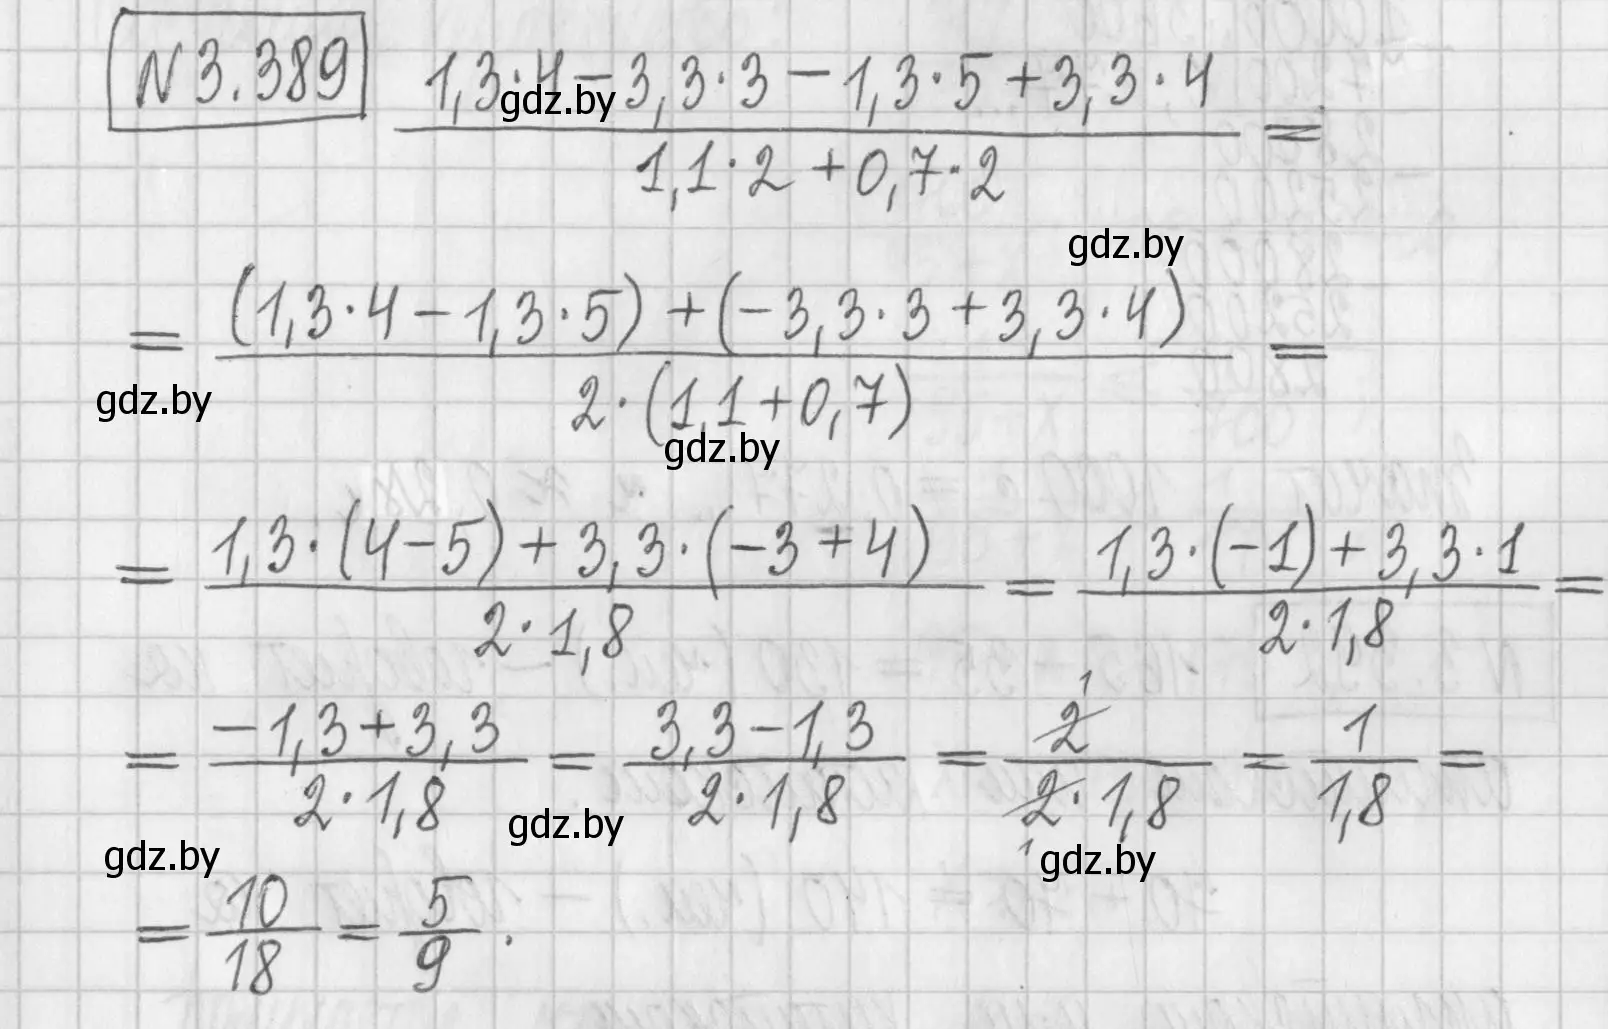 N3.389 (1,3·4−3,3·3−1,3·5+3,3·4)/(1,1·2+0,7·2) =
gdz.by
gdz.by
= ((1,3·4−1,3·5)+(−3,3·3+3,3·4))/(2·(1,1+0,7)) =
gdz.by
gdz.by
= (1,3·(4−5)+3,3·(−3+4))/(2·1,8) = (1,3·(−1)+3,3·1)/(2·1,8) =
= (−1,3+3,3)/(2·1,8) = (3,3−1,3)/(2·1,8) = 2 1/(2 1·1,8) = 1/1,8 =
gdz.by
gdz.by
gdz.by
= 10/18 = 5/9 .